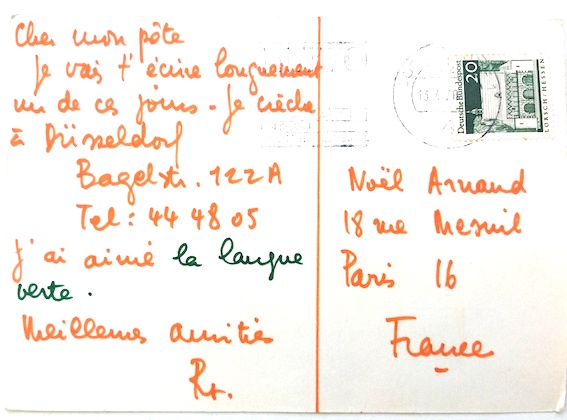 Cher mon pôte
Je vais t'écrire longuement
un de ces jours. Je crèche
à Düsseldorf
Bagelstr. 122A
Tel: 44 48 05
J'ai aimé la langue
verte.
Meilleures amitiés
Noël Arnaud
18 rue Mesnil
Paris 16
France
20
Deutsche Bundespost
LORSCH-HESSEN